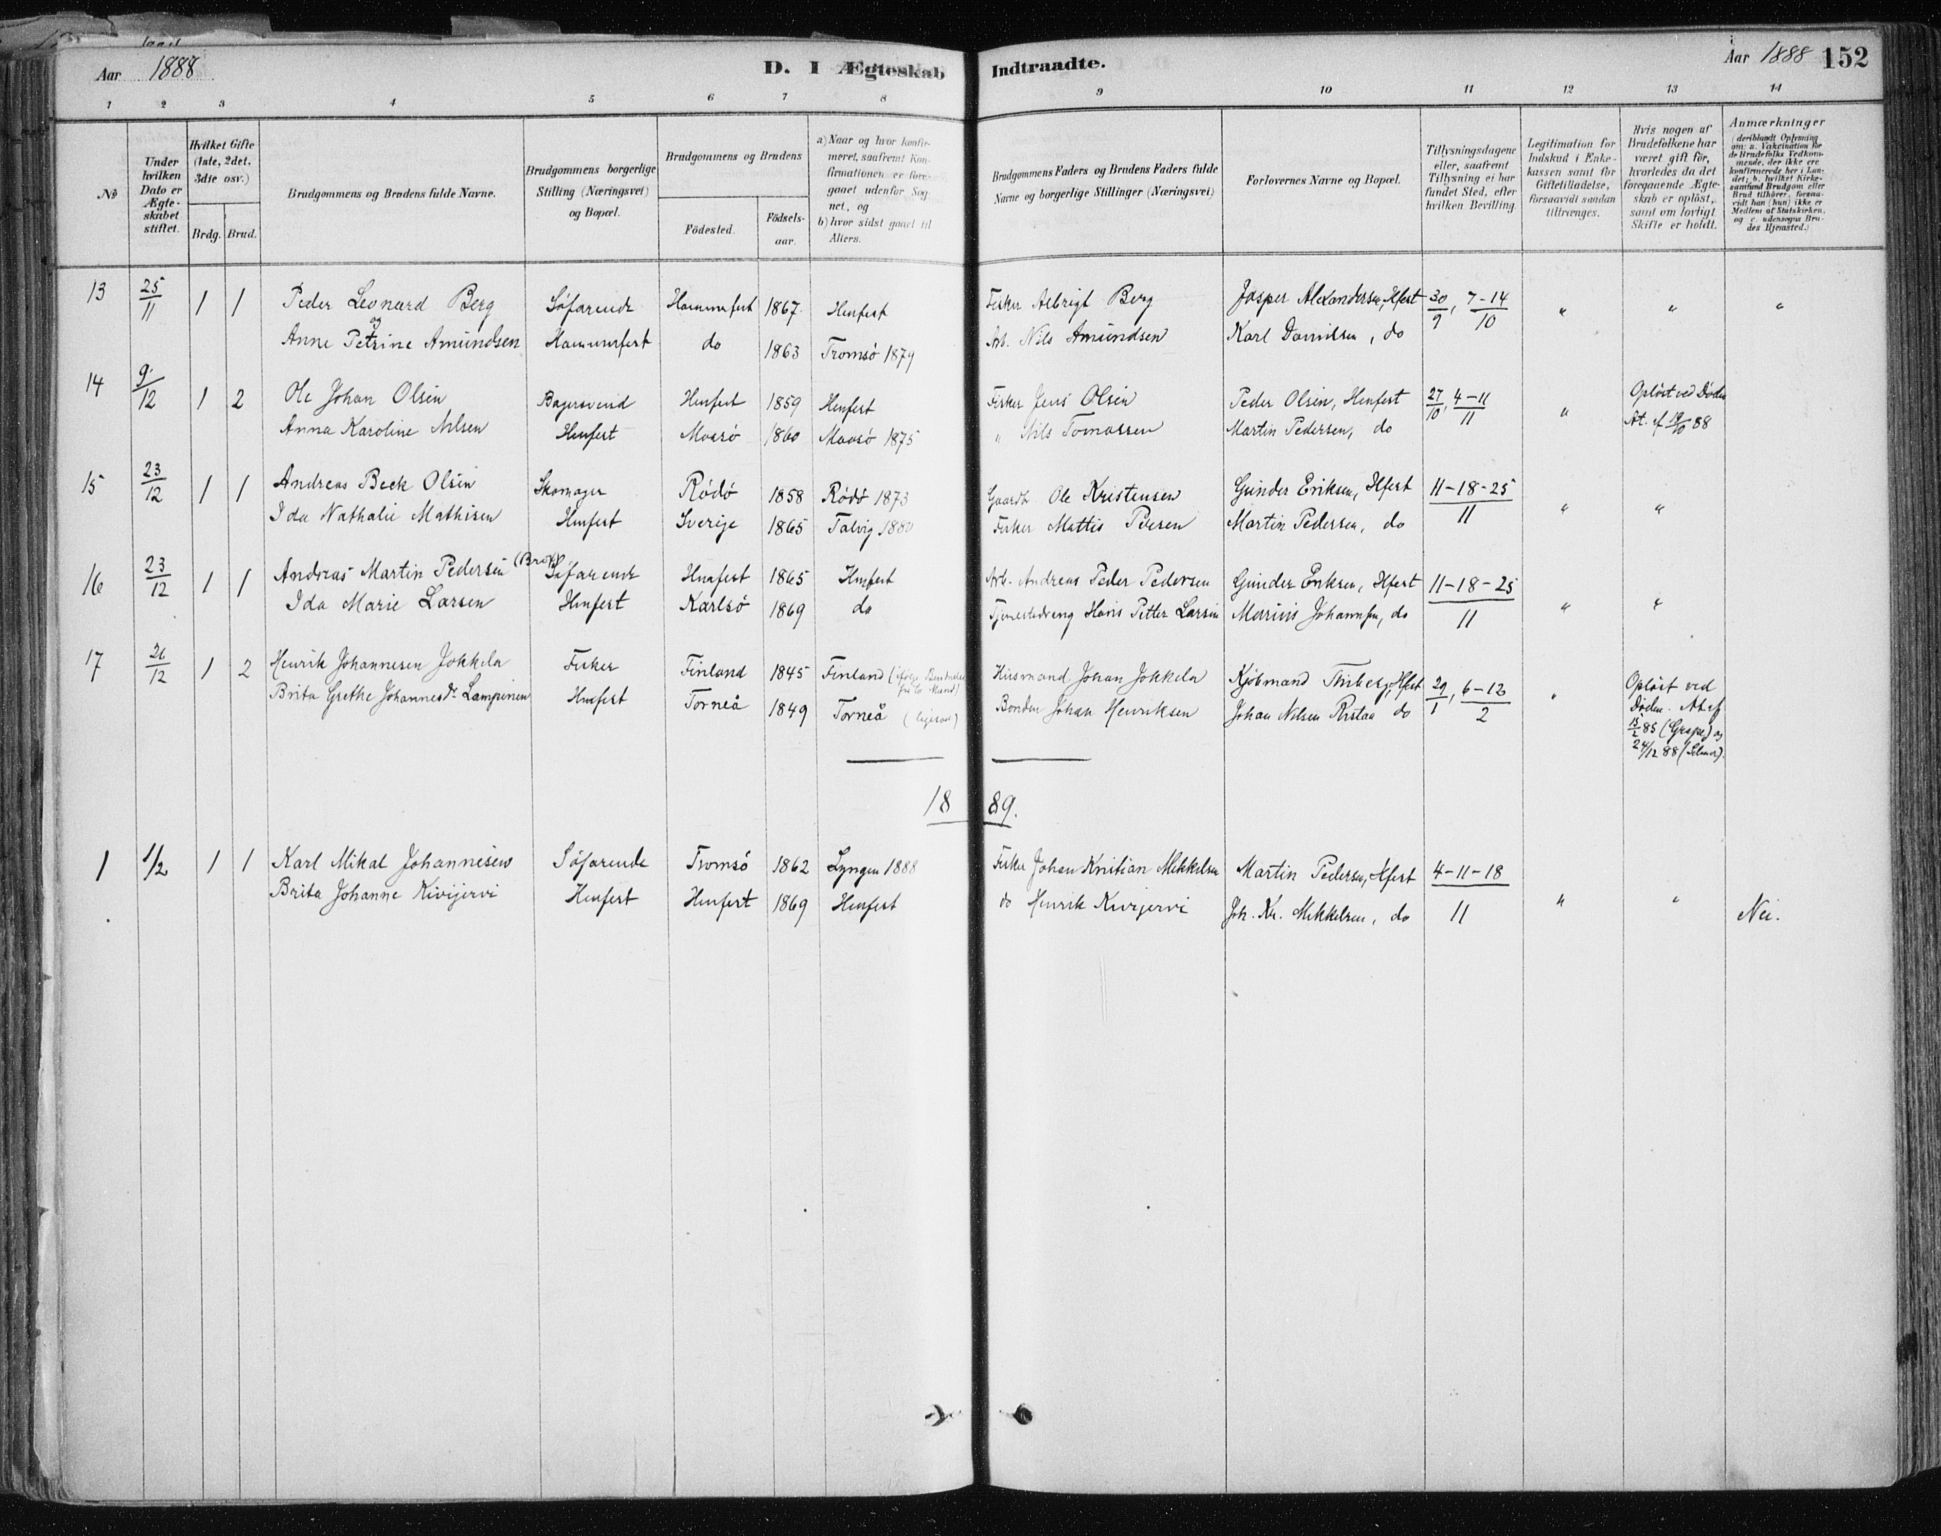 Aar 1888
D. I Ægteskab Indtraadte.
Aar 1888 152
1 2 3 4 5 6 7 8 9 10 11 12 13 14
№
Under hvilken Dato er Ægteskabet stiftet.
Hvilket Gifte (1ste, 2det, 3die osv.)
Brdg. Brud.
Brudgommens og Brudens fulde Navne.
Brudgommens borgerlige Stilling (Næringsvei) og Bopæl.
Brudgommens og Brudens
Födested.
Födselsaar.
a) Naar og hvor konfirmeret, saafremt Konfirmationen er foregaaet udenfor Sognet, og
b) hvor sidst gaaet til Alters.
Brudgommens Faders og Brudens Faders fulde Navne og borgerlige Stillinger (Næringsvei)
Forlovernes Navne og Bopæl.
Tillysningsdagene eller, saafremt Tillysning ei har fundet Sted, efter hvilken Bevilling.
Legitimation for Indskud i Enkekassen samt for Giftetilladelse, forsaavidt saadan tiltrænges.
Hvis nogen af Brudefolkene har været gift før, hvorledes da det foregaaende Ægteskab er oplöst, samt om lovligt Skifte er holdt.
Anmærkninger (deriblandt Oplysning om: a. Vakcination for de Brudefolks Vedkommende, der ikke ere konfirmerede her i Landet; b. hvilket Kirkesamfund Brudgom eller Brud tilhörer, forsaavidt han (hun) ikke er Medlem af Statskirken, og c. udensogns Brudes Hjemsted.)
13 25/11 1 1 Peder Leonard Berg Söfarende Hammerfest 1867 Hmfest Fisker Albrigt Berg Jasper Alexandersen, Hfest 30/9, 7-14/10 " " "
og
Anne Petrine Amundsen Hammerfest do 1863 Tromsö 1879 Arb. Nils Amundsen Karl Danielsen, do
14 9/12 1 2 Ole Johan Olsen Bagersvend Hmfest 1859 Hmfest Fisker Jens Olsen Peder Olsen, Hmfest 27/10, 4-11/11 " Oplöst ved Döden
Anna Karoline Nilsen Hmfest Maasö 1860 Maasö 1875 " Nils Tomassen Martin Pedersen, do At. af 19/10 88
15 23/12 1 1 Andreas Beck Olsen Skomager Rödö 1858 Rödö 1873 Gaardb. Ole Kristensen Gunder Eriksen, Hfest 11-18-25/11 " "
Ida Nathalie Mathisen Hmfest Sverige 1865 Talvig 1880 Fisker Mattis Martin Pedersen, do
16 23/12 1 1 Andreas Martin Pedersen Söfarende Hmfest 1865 Hmfest Arb. Andreas Peder Pedersen Gunder Eriksen, Hfest 11-18-25/11 " "
Ida Marie Larsen Hmfest Karlsö 1869 do Tjenestedreng Hans Petter Larsen Marius Johannsen, do
17 26/12 1 2 Henrik Johannesen Jokkela Fisker Finland 1845 Finland Husmand Johan Jokkela Kjöbmand Hfest 29/1, 6-12/2 " Oplöst ved
Brita Grethe Johannesdr. Lampinen Hmfest Torneå 1849 Torneå (ligesaa) Bonden Johan Henriksen Johan Nilsen do Döden. At. af
15/2 85 og
24/12 88
1889.
1 1/2 1 1 Karl Mikal Johannesen Söfarende Tromsö 1862 Lyngen 1888 Fisker Johan Kristian Mikkelsen Martin Pedersen, Hfest 4-11-18/11 " "
Brita Johanne Kivijervi Hmfest Hmfest 1869 Hmfest do Henrik Kivijervi Joh. Kr. Mikkelsen, do Nei.